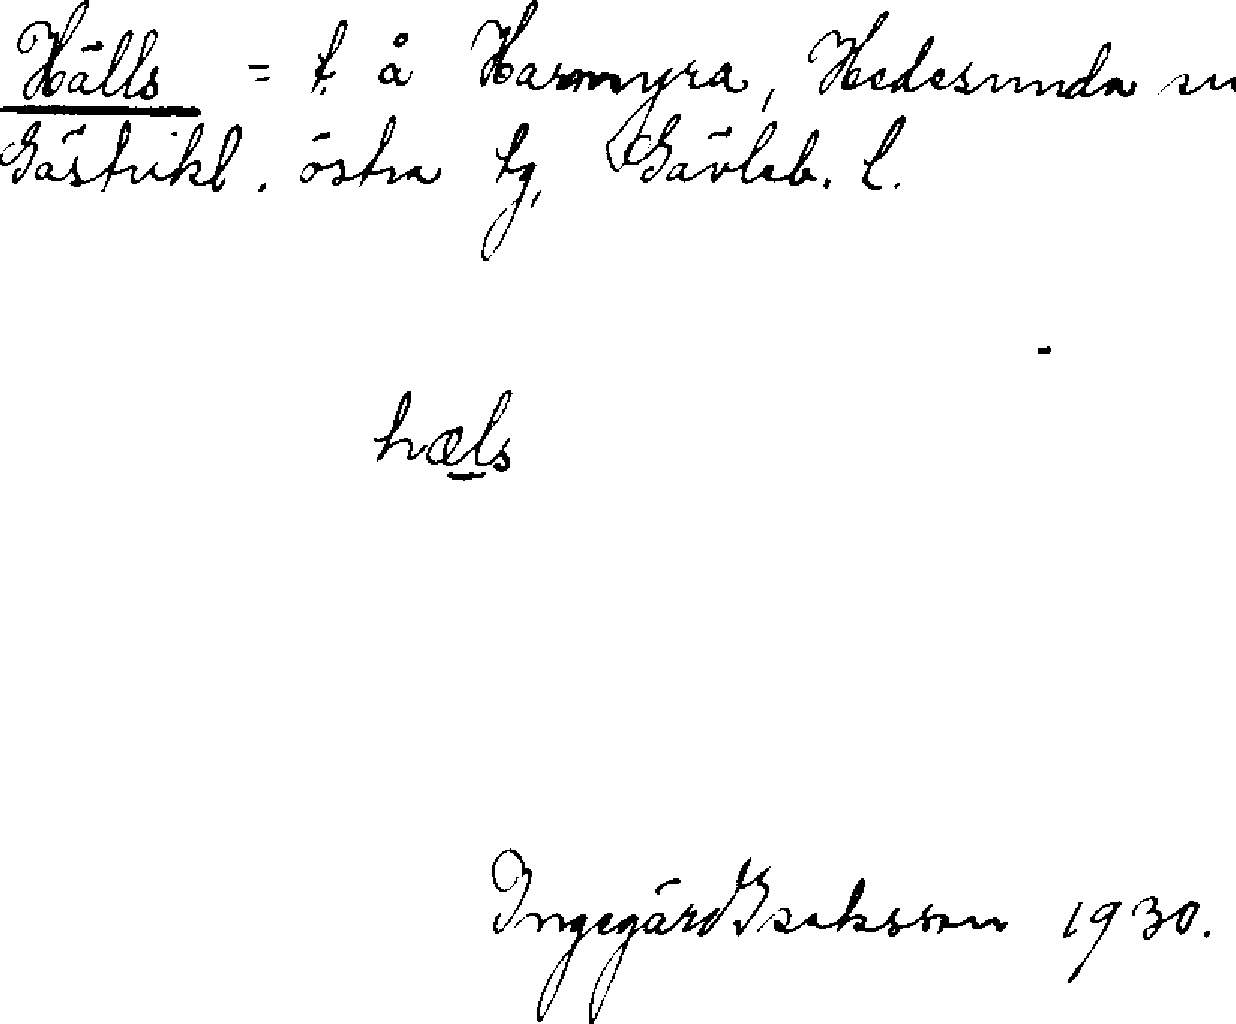 Hälls = t. å Harmyra, Hedesunda sn
Gästrikl. östra tg, Gävleb. l.
hæls
Ingegärd Isaksson 1930.